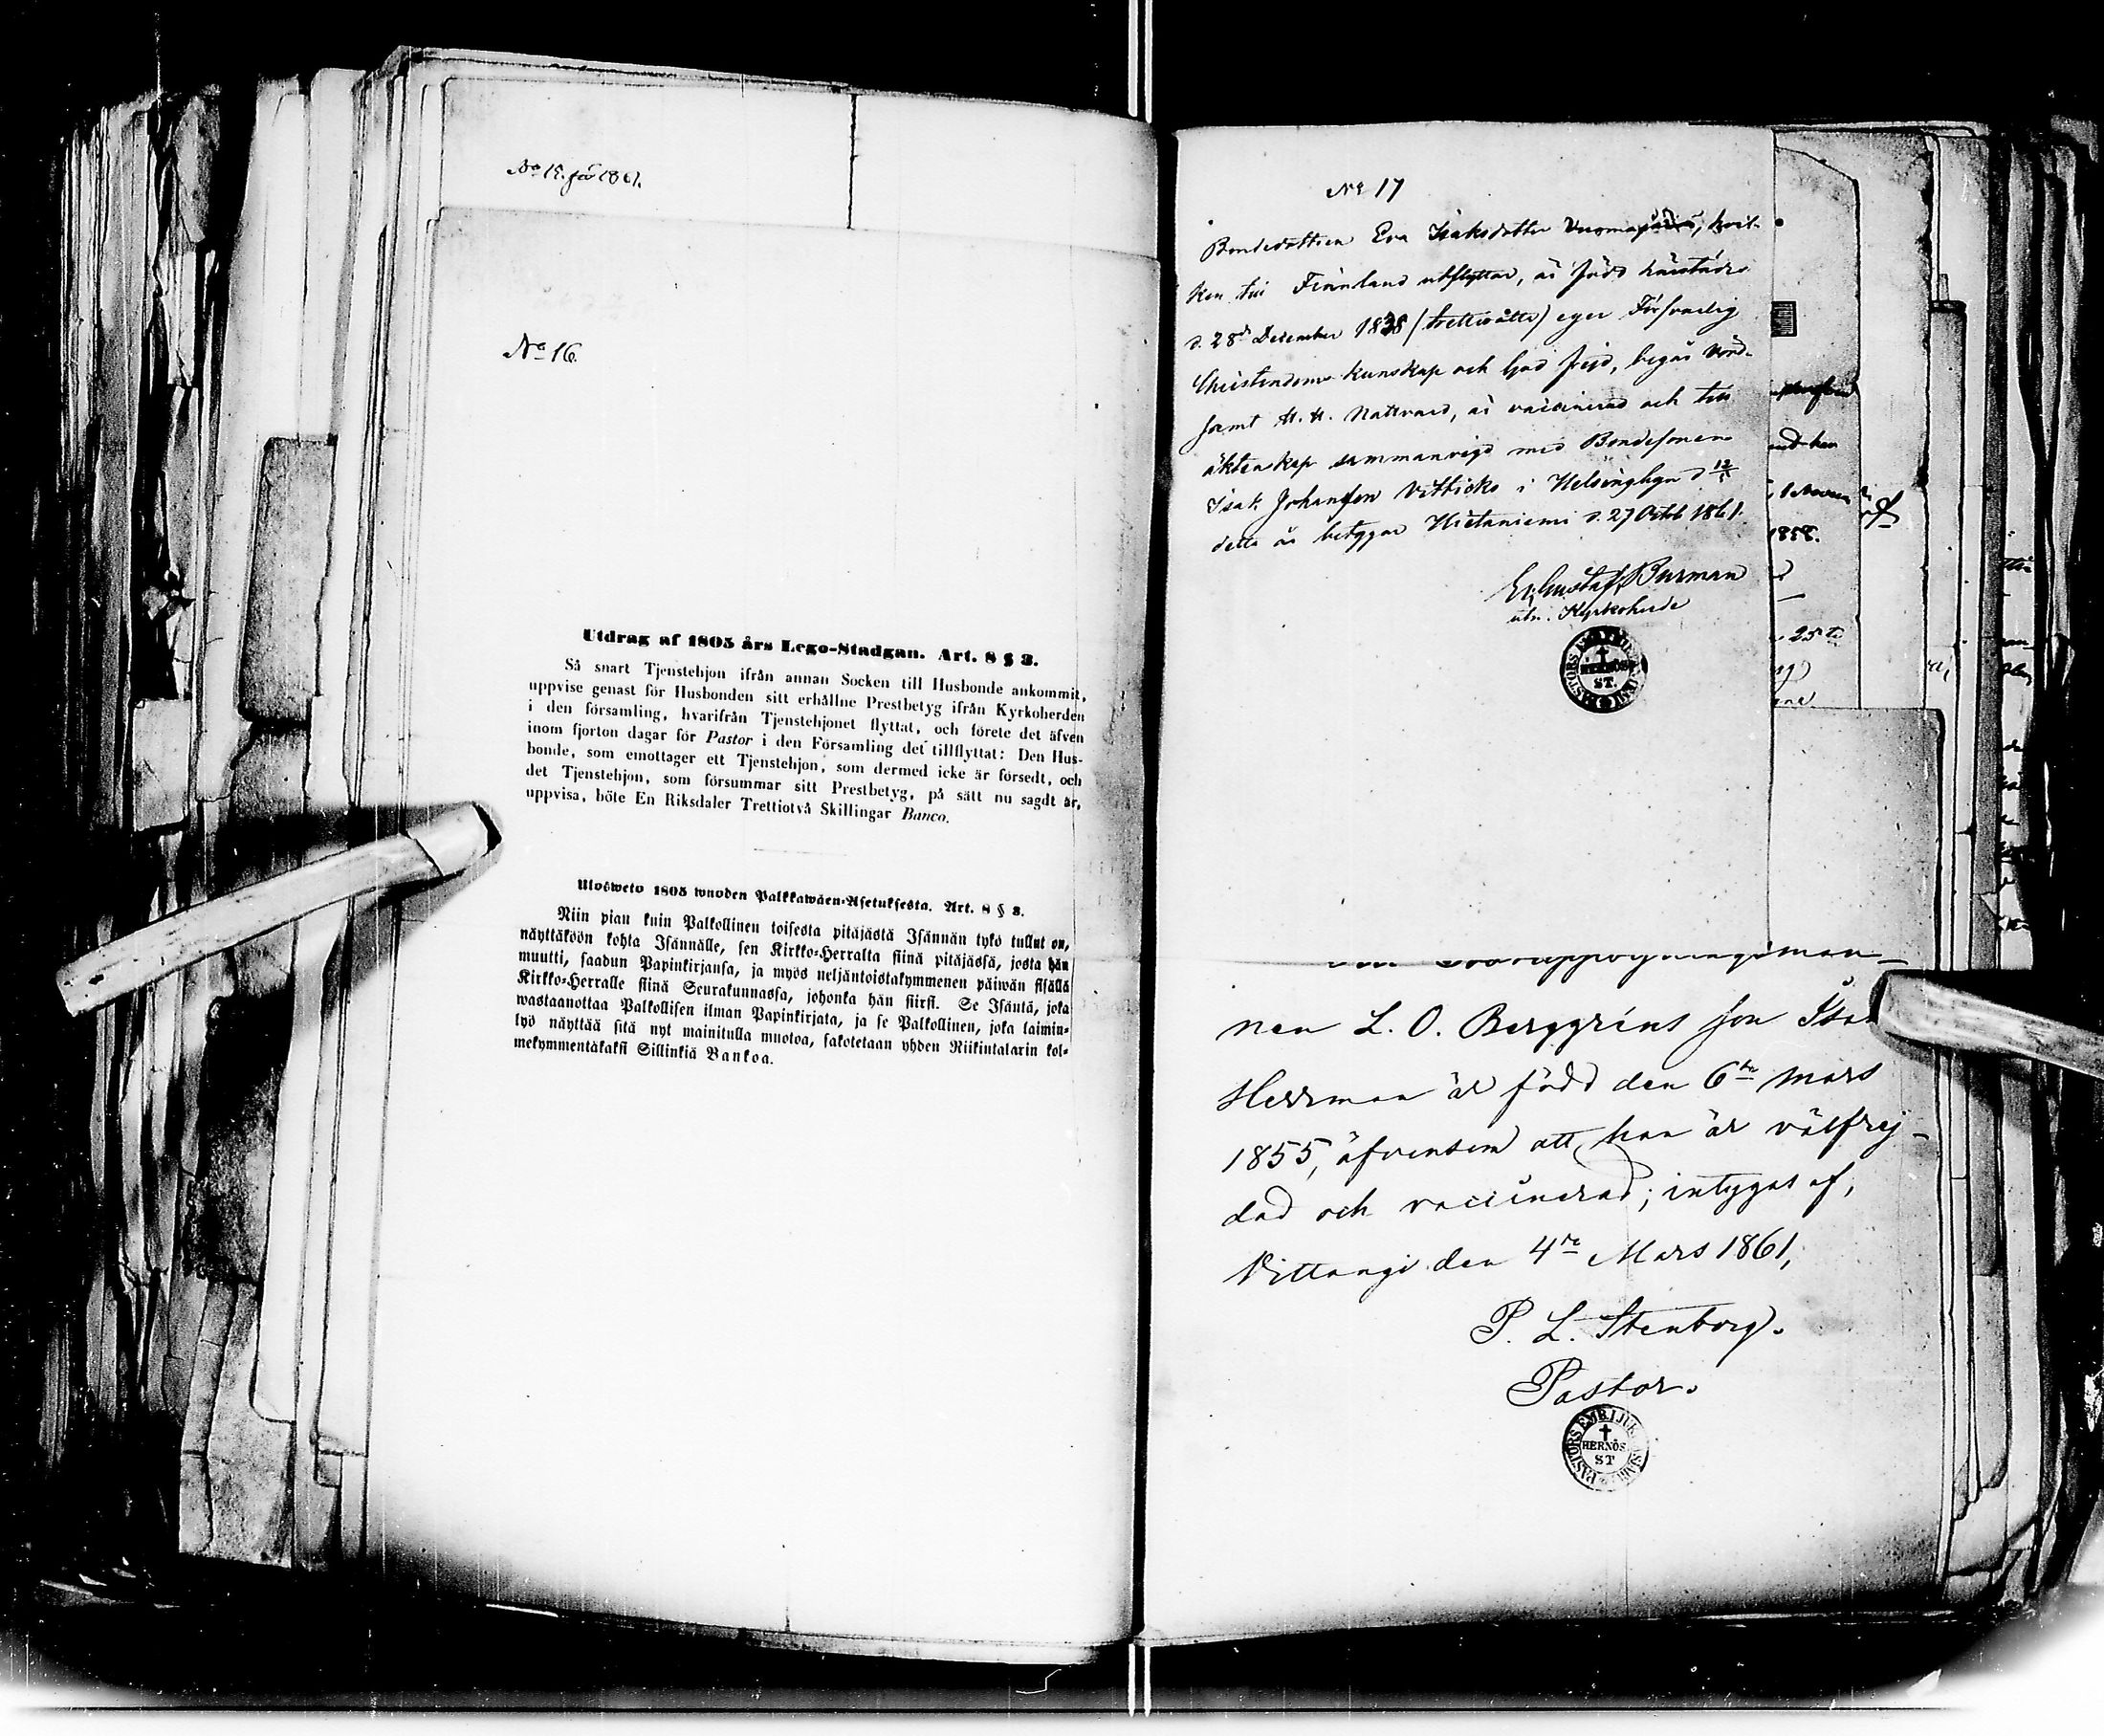 No 15. för 1861.
No 16.
Utdrag af 1805 års Lego-Stadgan. Art. 8 § 3.
Så snart Tjenstehjon ifrån annan Socken till Husbonde ankommit,
uppvise genast för Husbonden sitt erhållne Prestbetyg ifrån Kyrkoherden
i den församling, hvarifrån Tjenstehjonet flyttat, och förete det äfven
inom fjorton dagar för Pastor i den Församling det tillflyttat: Den Hus-
bonde, som emottager ett Tjenstehjon, som dermed icke är försedt, och
det Tjenstehjon, som försummar sitt Prestbetyg, på sätt nu sagdt är,
uppvisa, böte En Riksdaler Trettiotvå Skillingar Banco.
Ulosweto 1805 wuoden Palkkawäen-Asetuksesta. Art. 8 § 3.
Niin pian kuin Palkollinen toisesta pitäjästä Isännän tykö tullut on,
näyttäköön kohta Isännälle, sen Kirkko-Herralta siinä pitäjässä, josta hän
muutti, saadun Papinkirjansa, ja myös neljäntoistakymmenen päiwän sisällä
Kirkko-Herralle siinä Seurakunnassa, johonka hän siirsi. Se Isäntä, joka
wastaanottaa Palkollisen ilman Papinkirjata, ja se Palkollinen, joka laimin-
lyö näyttää sitä nyt mainitulla muotoa, sakotetaan yhden Riikintalarin kol-
mekymmentäkaksi Sillinkiä Bankoa.
No 17
Bondedottren Eva Isaksdotter hvil-
ken till Finnland utflyttar, är född härstädes
d. 28de December 1838 (trettioåtta) eger Försvarlig
Christendoms kunskap och god frejd, begår vörd-
samt H. H. Nattvard, är vaccinerad och till
äktenskap sammanvigd med Bondesonen
Isak Johansson Vitticko i Helsingbyn d 12/5
detta år betygar Hietaniemi d. 27 Octob 1861.
Er. Gustaf Burman
utn. Kyrkoherde
nen L. O. Berggréns son Isak
Herrman är född den 6te Mars
1855, äfvensom att han är välfrej-
dad och vaccinerad; intygas af,
Vittangi den 4de Mars 1861,
P. L. Stenborg.
Pastor.
HERNÖS.
ST